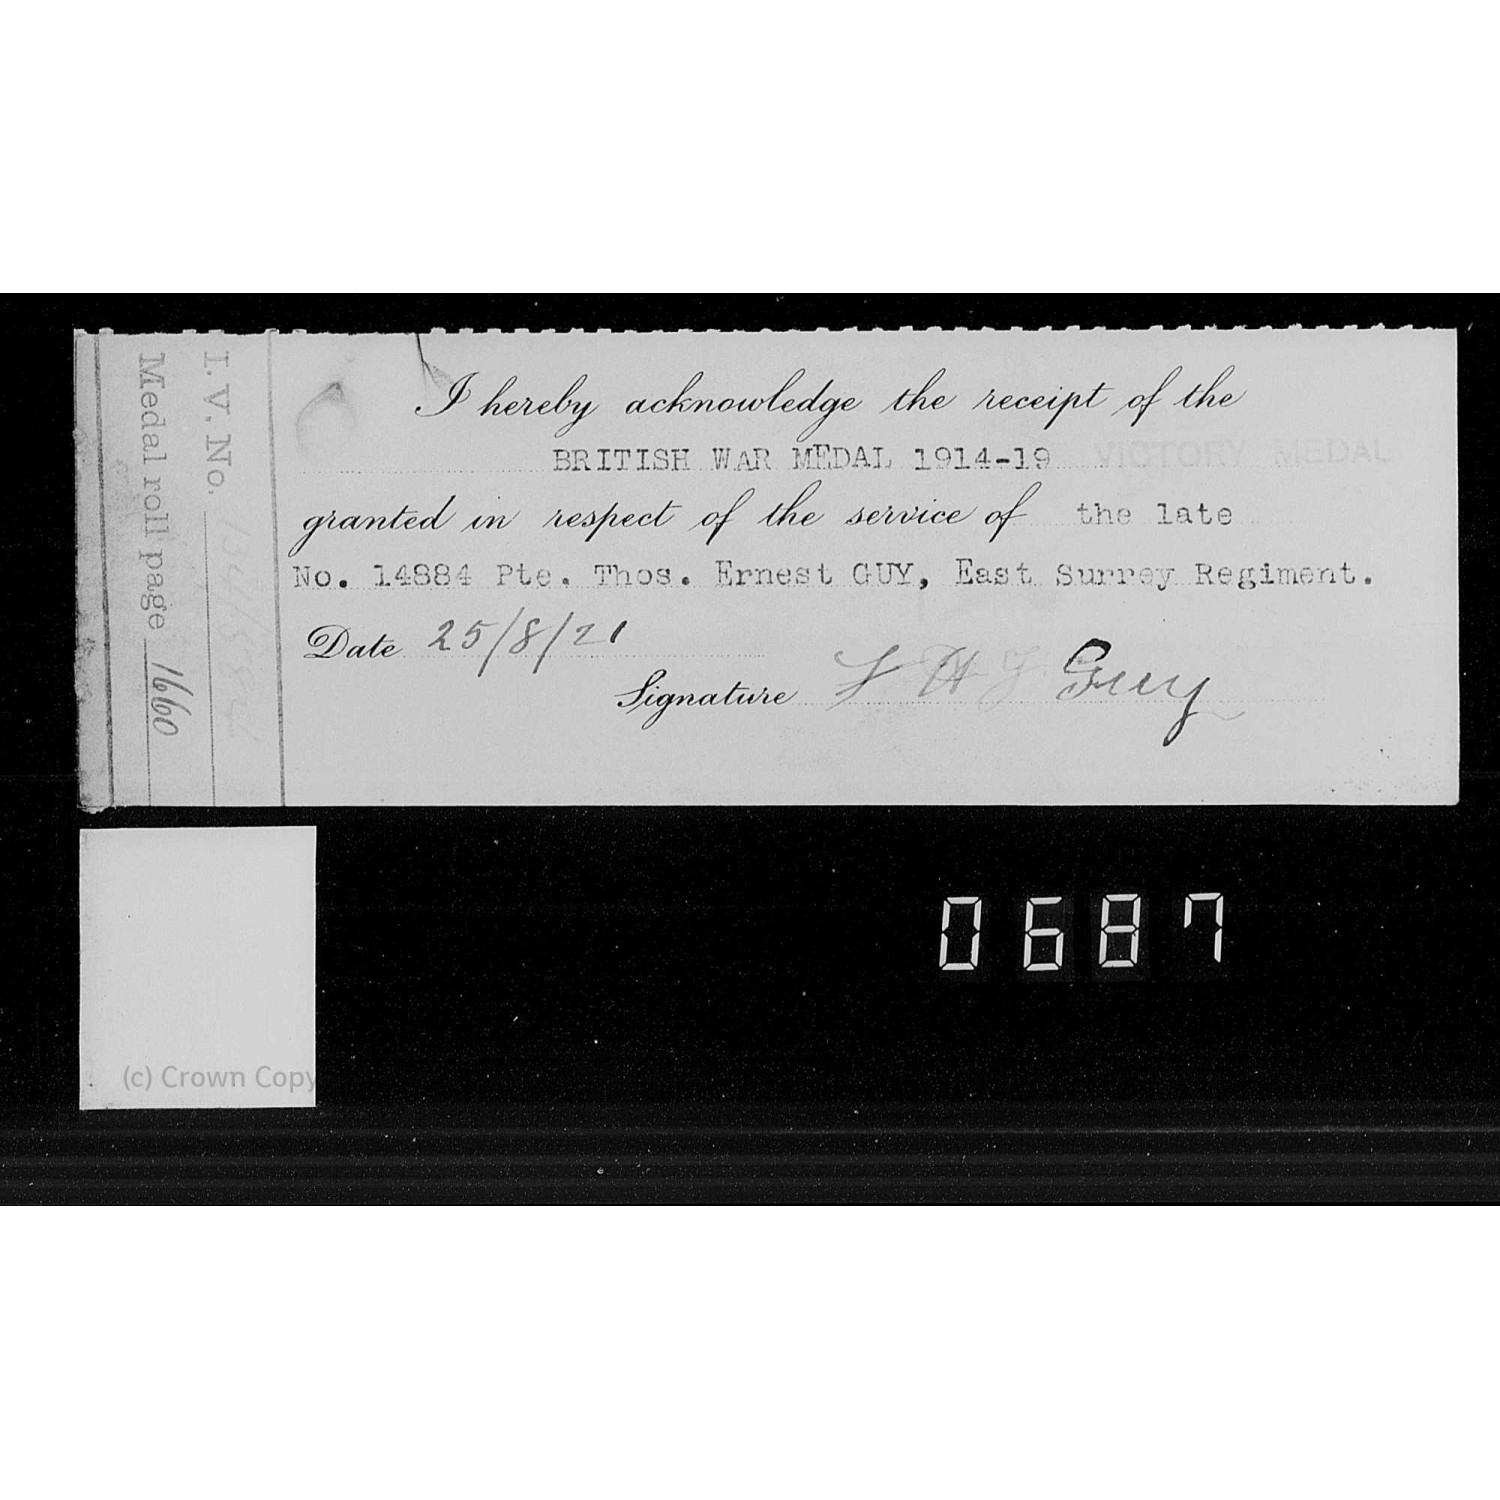 I hereby acknowledge the receipt of the
BRITISH WAR MEDAL 1914-19 VICTORY MEDAL
granted in respect of the service of the late
No. 14884 Pte. Thos. Ernest GUY, East Surrey Regiment.
Date 25/8/21
Signature Guy
I. V. No.
Medal roll page 1660
0687
(c) Crown Copy